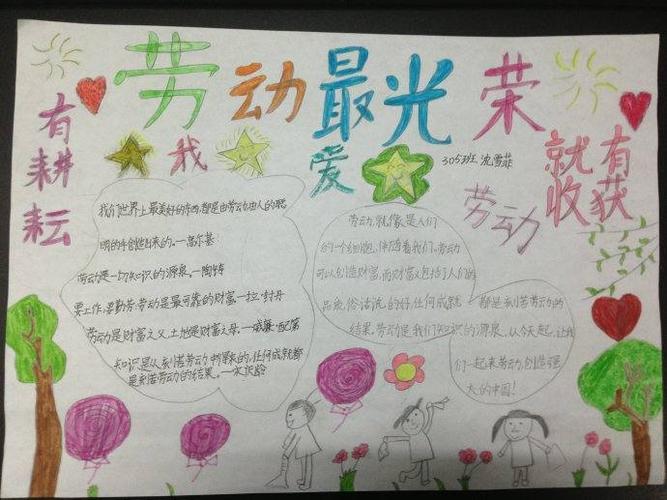 劳动最光荣
有耕耘
我爱劳动
3053班 沈雪菲
就有收获
我们世界上最美好的东西,都是由劳动由人的聪
明的手创造出来的。—高尔基
劳动是一切知识的源泉。—陶铸
要工作,要勤劳:劳动是最可靠的财富—拉·封丹
劳动是财富之父,土地是财富之母。—威廉·配第
知识是从刻苦劳动中得来的,任何成就都
是刻苦劳动的结果。—宋庆龄
劳动,就像是人们
的一个细胞,伴随着我们。劳动
可以创造财富,而财富包括了人们的
品质,俗话说的好,任何成就
都是刻苦劳动的
结果,劳动是我们知识的源泉。从今天起,让我
们一起来劳动,创造强
大的中国!